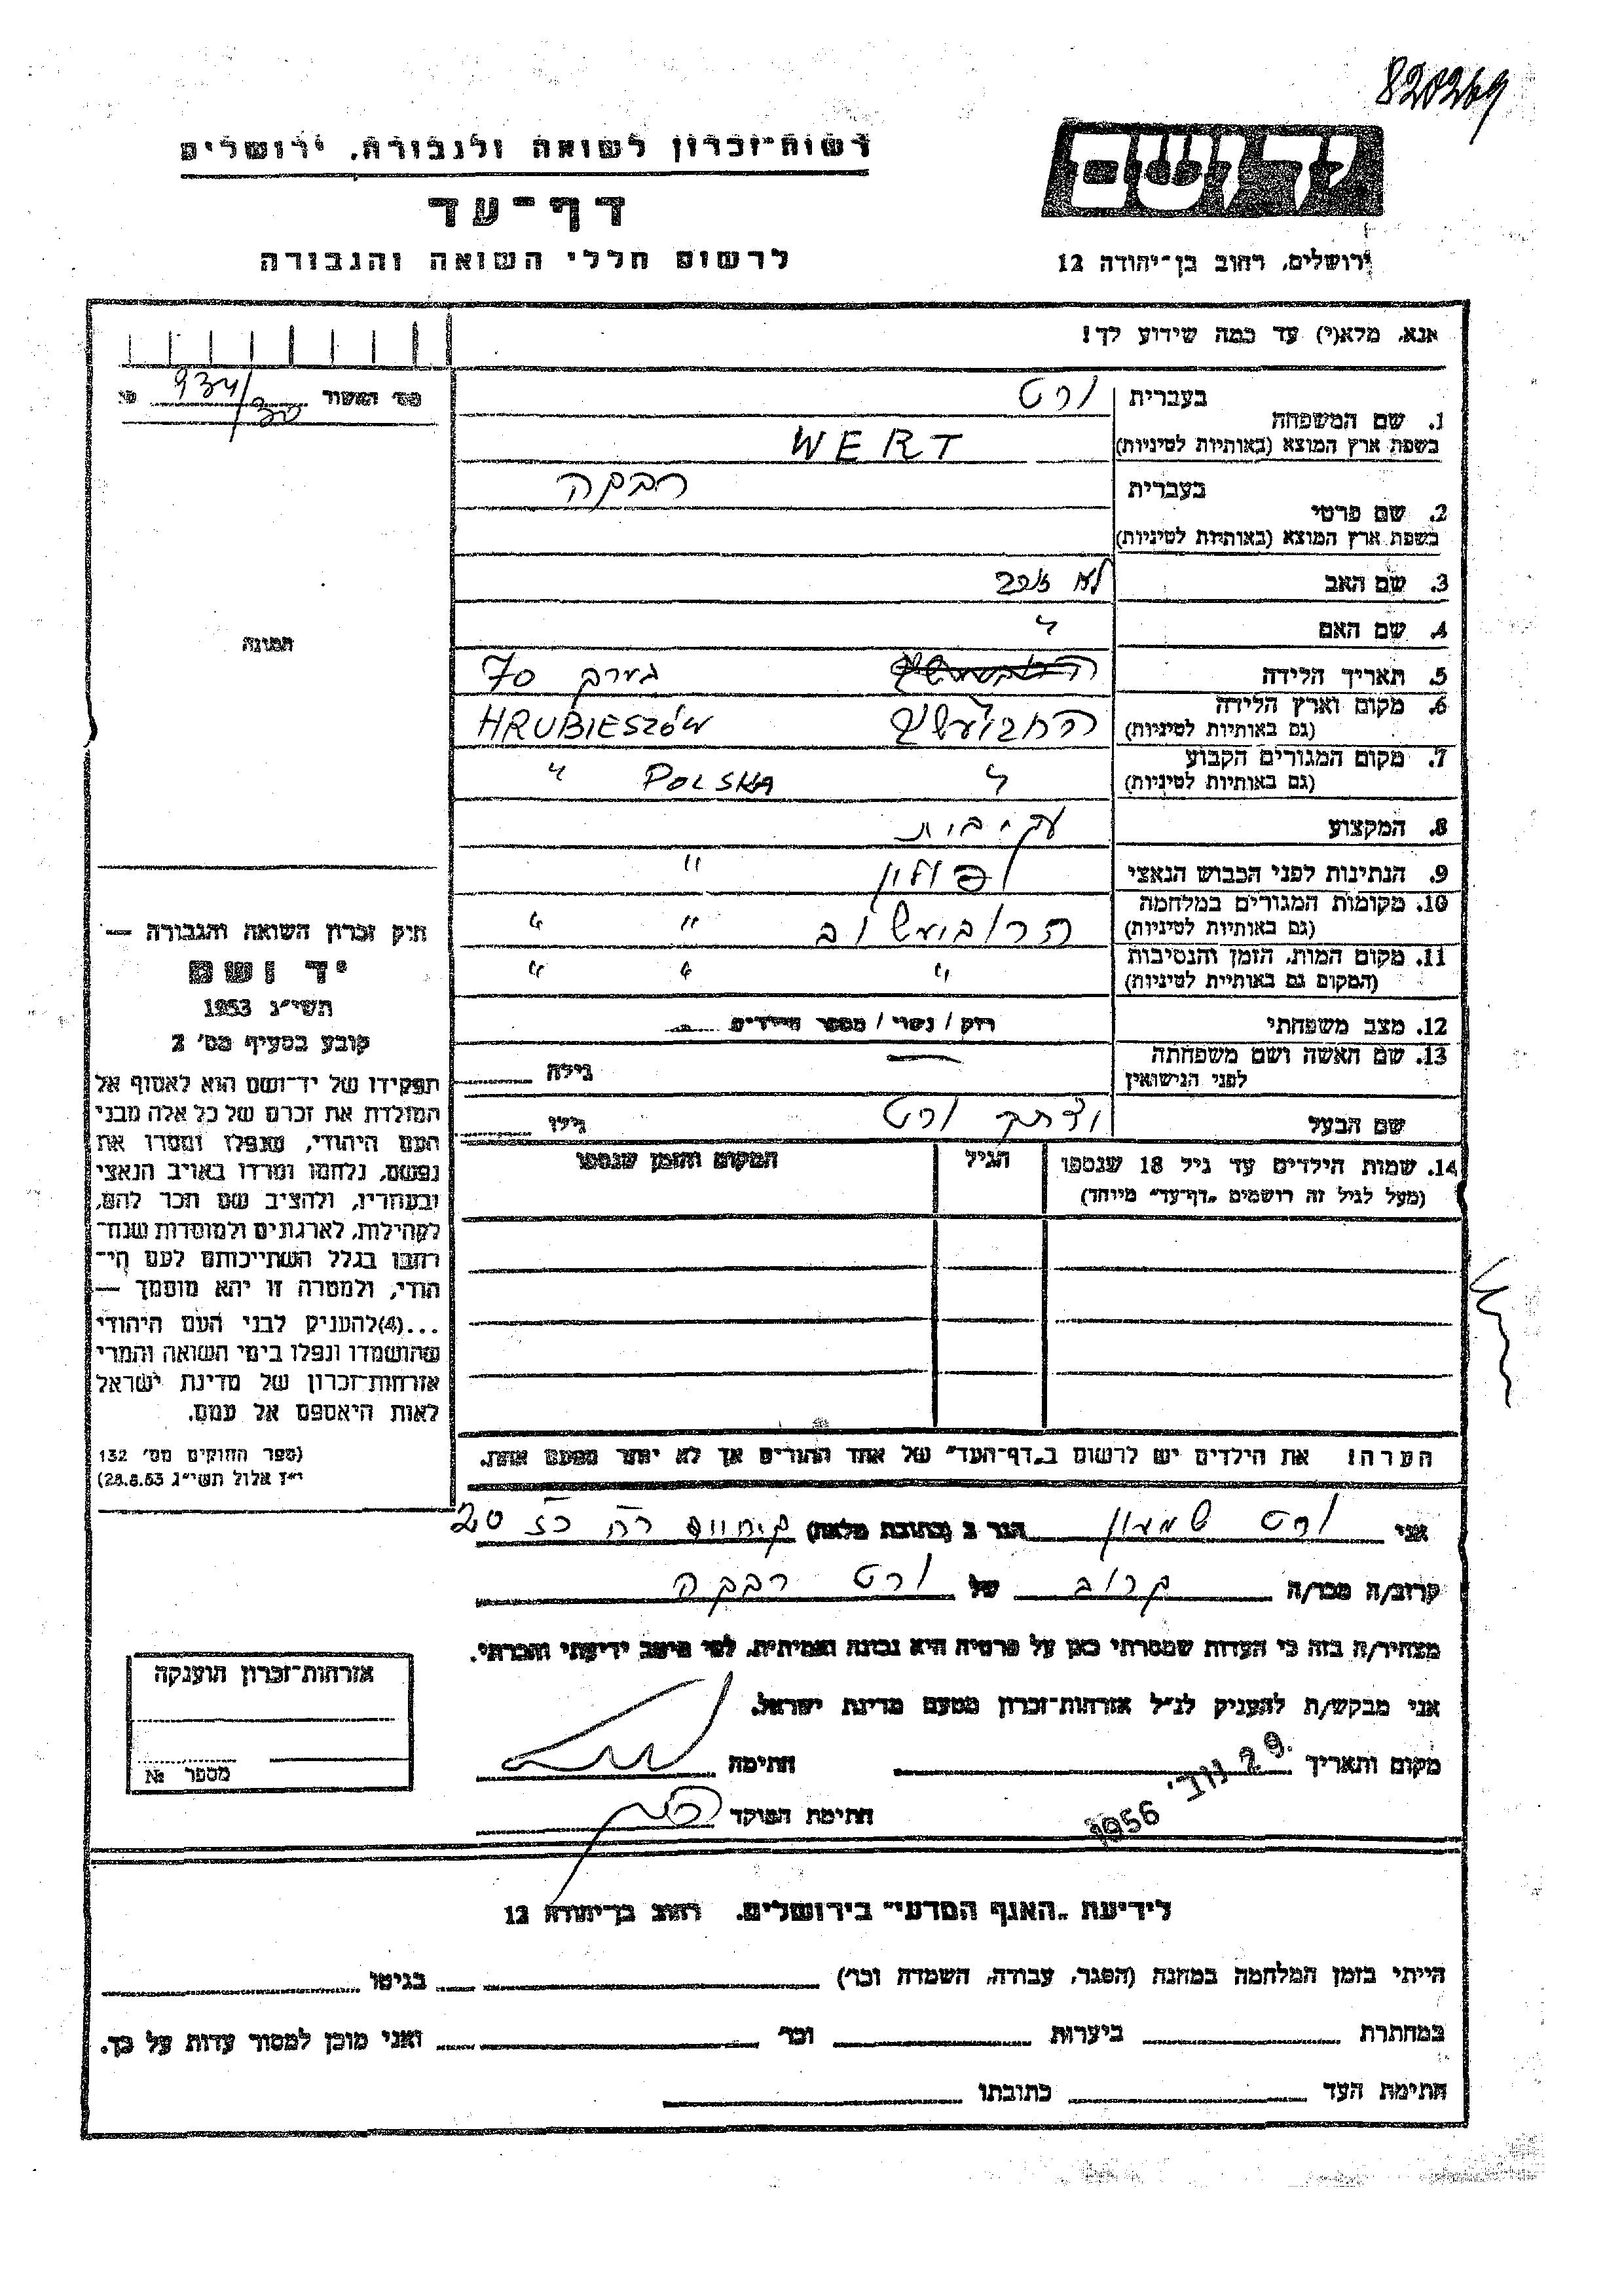 820269
רשות-זכרון לשואה ולגבורה, ירושלים
דף-עד
לרשום חללי השואה והגבורה
ידושם
ירושלים, רחוב בן-יהודה 12
אנא, מלא(י) עד כמה שידוע לך!
מס' האשור 934/30
התמונה
1. שם המשפחה
בעברית ורט
בשפת ארץ המוצא (באותיות לטיניות) WERT
2. שם פרטי
בעברית רבקה
בשפת ארץ המוצא (באותיות לטיניות)
3. שם האב לא זוכר
4. שם האם "
5. תאריך הלידה בערך 70
6. מקום וארץ הלידה
(גם באותיות לטיניות) HRUBIESZÓW
7. מקום המגורים הקבוע
(גם באותיות לטיניות) " POLSKA "
8. המקצוע עקר בית
9. הנתינות לפני הכבוש הנאצי פולין "
10. מקומות המגורים במלחמה
(גם באותיות לטיניות) הרוביעשוב " "
11. מקום המות, הזמן והנסיבות
(המקום גם באותיית לטיניות) " " "
12. מצב משפחתי רוק / נשוי / מספר הילדים
13. שם האשה ושם משפחתה
לפני הנישואין — גילה
שם הבעל ורט גילו
14. שמות הילדים עד גיל 18 שנספו
(מעל לגיל זה רושמים "דף-עד" מיוחד)
הגיל
המקום והזמן שנספו
חוק זכרון השואה והגבורה —
יד ושם
תשי"ג 1953
קובע בסעיף מס' 2
תפקידו של יד-ושם הוא לאסוף אל
המולדת את זכרם של כל אלה מבני
העם היהודי, שנפלו ומסרו את
נפשם, נלחמו ומרדו באויב הנאצי
ובעוזריו, ולהציב שם וזכר להם,
לקהילות, לארגונים ולמוסדות שנח-
רחבו בגלל השתייכותם לעם הי-
הודי, ולמטרה זו יהא מוסמך —
...(4)להעניק לבני העם היהודי
שהושמדו ונפלו בימי השואה והמרי
אזרחות-זכרון של מדינת ישראל
לאות היאספם אל עמם.
(ספר החוקים מס' 132
י"ז אלול תשי"ג 28.8.53)
הערה! את הילדים יש לרשום ב"דף-העד" של אחד ההורים אך לא יותר מפעם אחת.
אני ורט שמעון הגר ב (כתובת מלאה) 20
קרוב/ה מכר/ה קרוב של ורט רבקה
מצהיר/ה בזה כי העדות שמסרתי כאן על פרטיה היא נכונה ואמיתית, לפי מיטב ידיעתי והכרתי.
אני מבקש/ת להעניק לנ"ל אזרחות-זכרון מטעם מדינת ישראל.
מקום ותאריך 29 נוב' 1956 חתימה
חתימת הפוקד
אזרחות-זכרון הוענקה
מספר №
לידיעת "האגף המדעי" בירושלים, רחוב בן-יהודה 12
הייתי בזמן המלחמה במחנה (הסגר, עבודה, השמדה וכר') בגיטו
במחתרת ביערות וכר' ואני מוכן למסור עדות על כך.
חתימת העד כתובתו